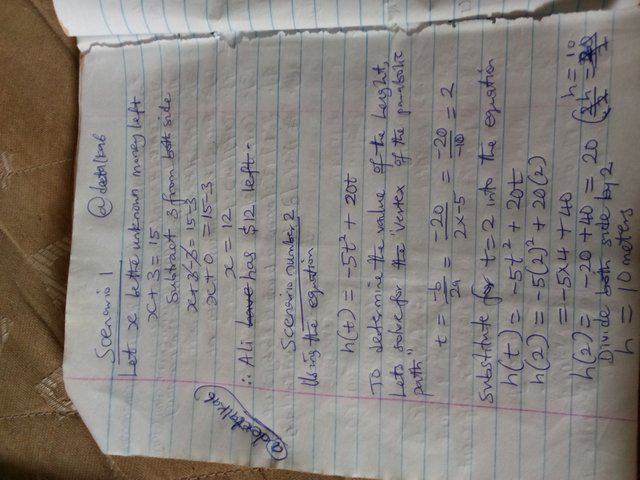 Scenario 1
@deetalkab
Let x be the unknown money left
x + 3 = 15
Subtract 3 from both side
x + 3 - 3 = 15 - 3
x + 0 = 15 - 3
x = 12
∴ Ali have has $12 left.
@deetalkab
Scenario number 2
Using the equation
h(t) = -5t² + 20t
To determine the value of the height,
Lets solve for the "vertex of the parabolic
path"
t = -b/2a = -20/2x-5 = -20/-10 = 2
Substitute for t = 2 into the equation
h(t) = -5t² + 20t
h(2) = -5(2)² + 20(2)
= -5x4 + 40
h(2) = -20 + 40 = 20
Divide both side by 2
h = 10
h = 10 meters